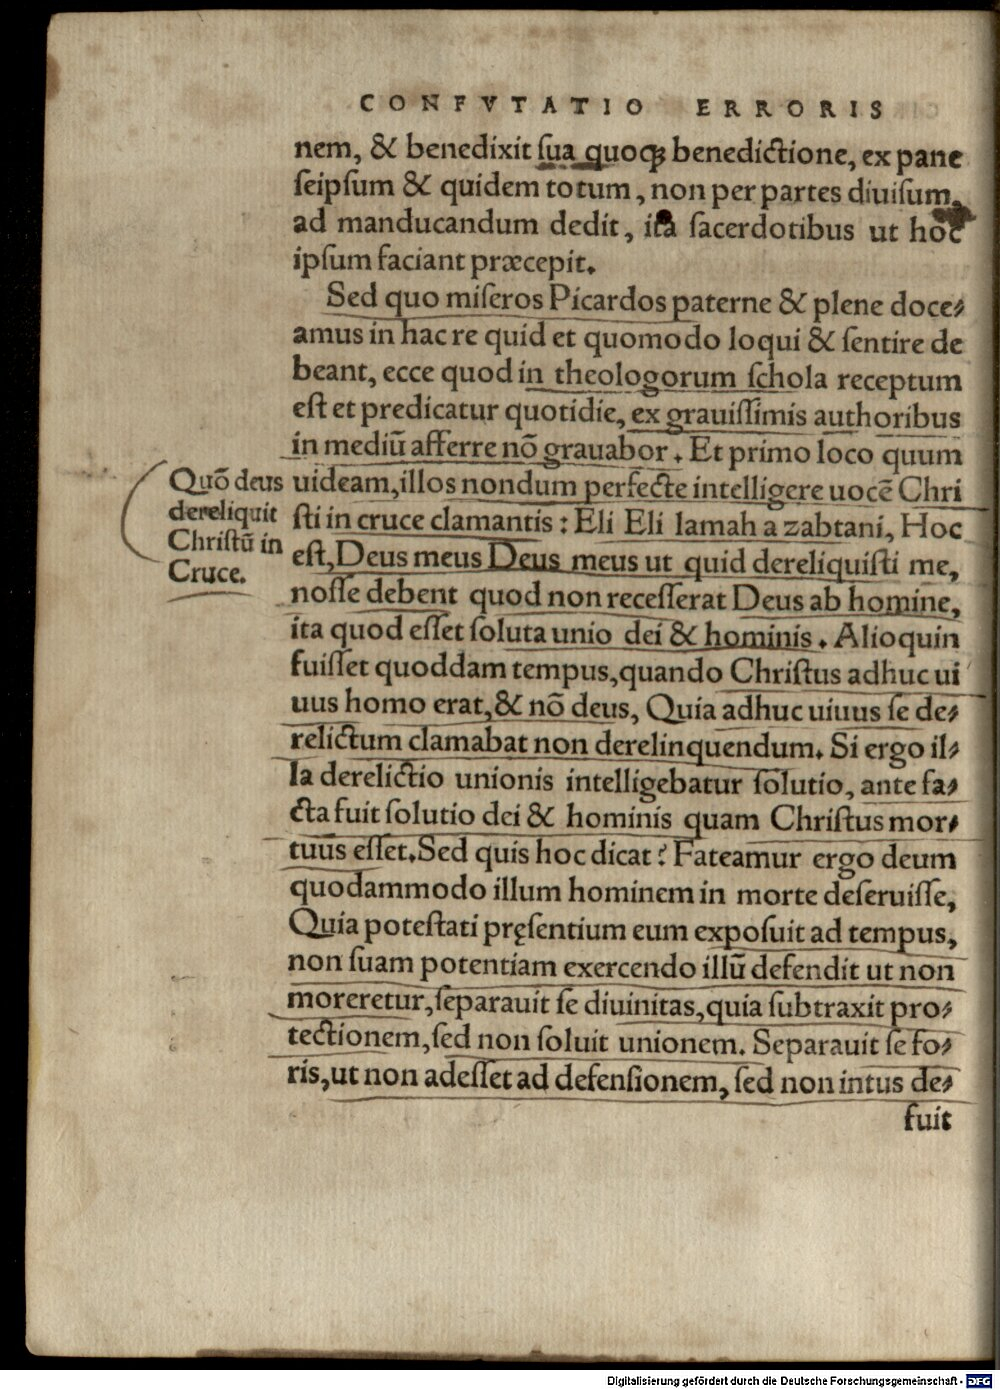 CONFVTATIO ERRORIS
nem, & benedixit ſua quoqꝫ benedictione, ex pane
ſeipſum & quidem totum, non per partes diuiſum,
ad manducandum dedit, ita ſacerdotibus ut hoc
ipſum faciant præcepit.
Sed quo miſeros Picardos paterne & plene doce⸗
amus in hac re quid et quomodo loqui & ſentire de
beant, ecce quod in theologorum ſchola receptum
eſt et predicatur quotidie, ex grauiſſimis authoribus
in mediū afferre nō grauabor. Et primo loco quum
uideam, illos nondum perfecte intelligere uocē Chri
ſti in cruce clamantis: Eli Eli lamah a zabtani, Hoc
eſt, Deus meus Deus meus ut quid dereliquiſti me,
noſſe debent quod non receſſerat Deus ab homine,
ita quod eſſet ſoluta unio dei & hominis. Alioquin
fuiſſet quoddam tempus, quando Chriſtus adhuc ui
uus homo erat, & nō deus, Quia adhuc uiuus ſe de⸗
relictum clamabat non derelinquendum. Si ergo il⸗
la derelictio unionis intelligebatur ſolutio, ante fa⸗
cta fuit ſolutio dei & hominis quam Chriſtus mor⸗
tuus eſſet. Sed quis hoc dicat? Fateamur ergo deum
quodammodo illum hominem in morte deſeruiſſe,
Quia poteſtati pręſentium eum expoſuit ad tempus,
non ſuam potentiam exercendo illū defendit ut non
moreretur, ſeparauit ſe diuinitas, quia ſubtraxit pro⸗
tectionem, ſed non ſoluit unionem. Separauit ſe fo⸗
ris, ut non adeſſet ad defenſionem, ſed non intus de⸗
fuit
Quō deus
dereliquit
Chriſtū in
Cruce.
Digitalisierung gefördert durch die Deutsche Forschungsgemeinschaft - DFG